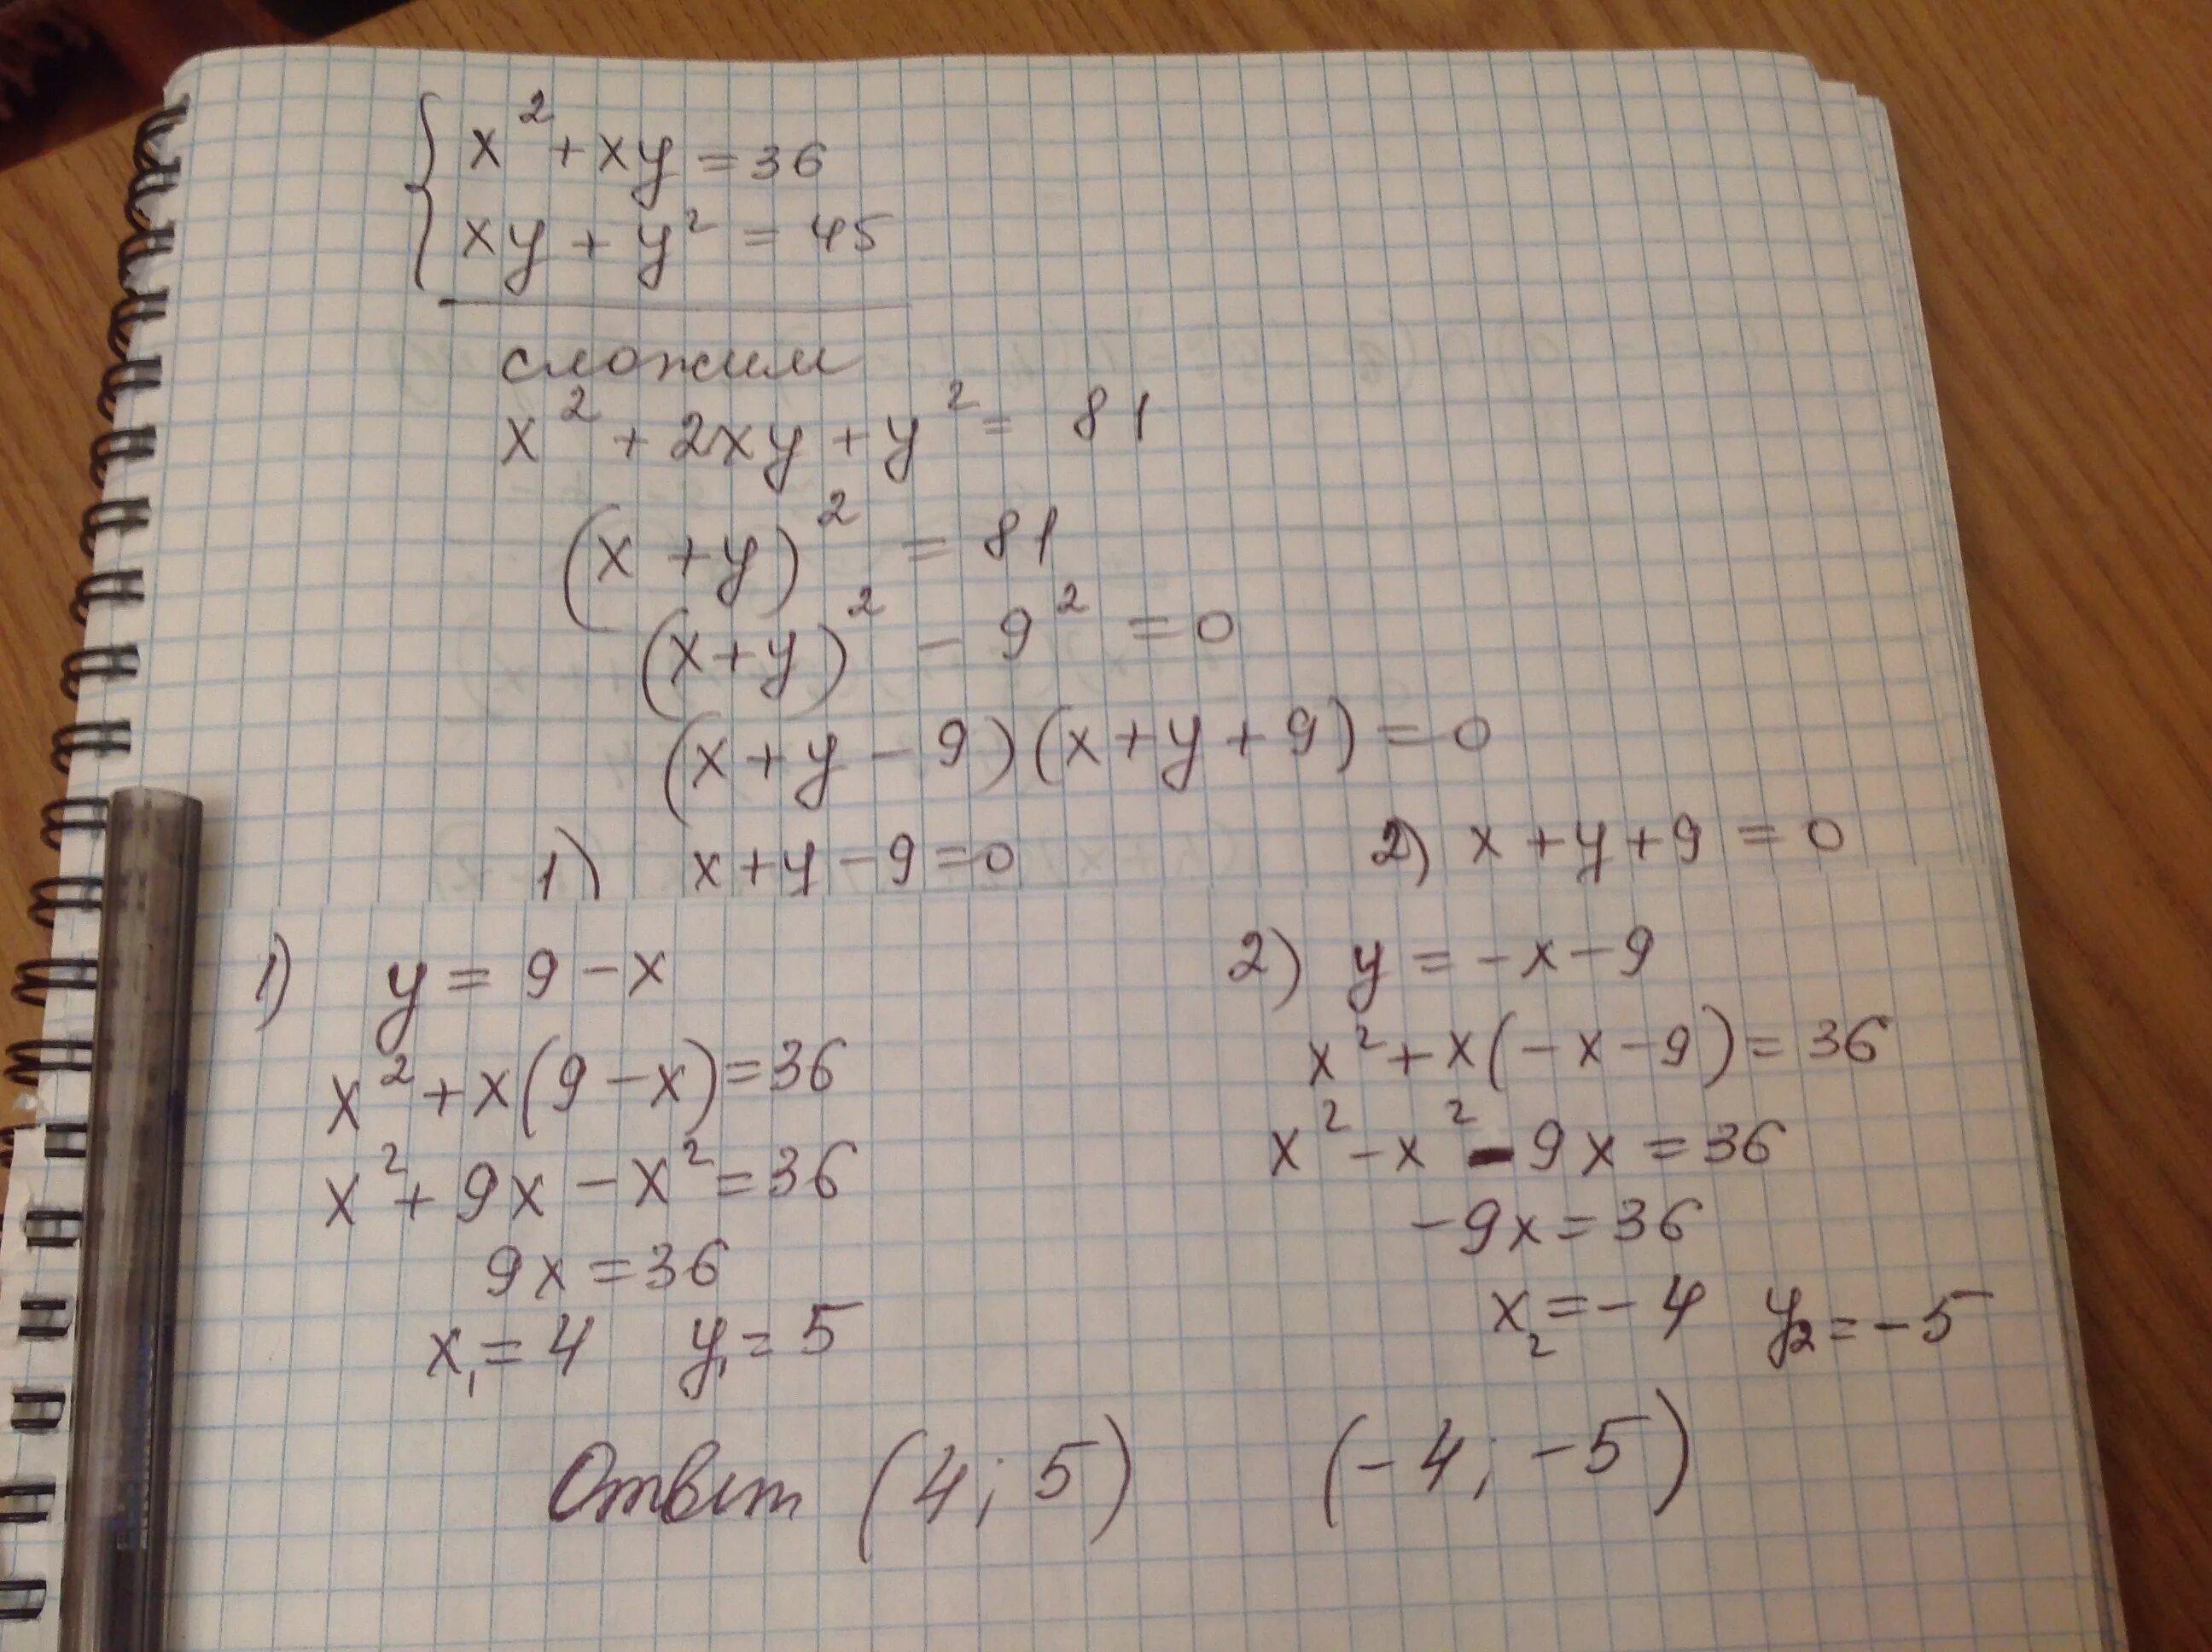 x² + xy = 36
xy + y² = 45
сложим
x² + 2xy + y² = 81
(x + y)² = 81
(x+y)² - 9² = 0
(x + y - 9)(x + y + 9) = 0
1) x + y - 9 = 0
2) x + y + 9 = 0
1) y = 9 - x
x² + x(9 - x) = 36
x² + 9x - x² = 36
9x = 36
x₁ = 4 y₁ = 5
2) y = -x - 9
x² + x(-x - 9) = 36
x² - x² - 9x = 36
-9x = 36
x₂ = -4 y₂ = -5
Ответ (4; 5) (-4; -5)